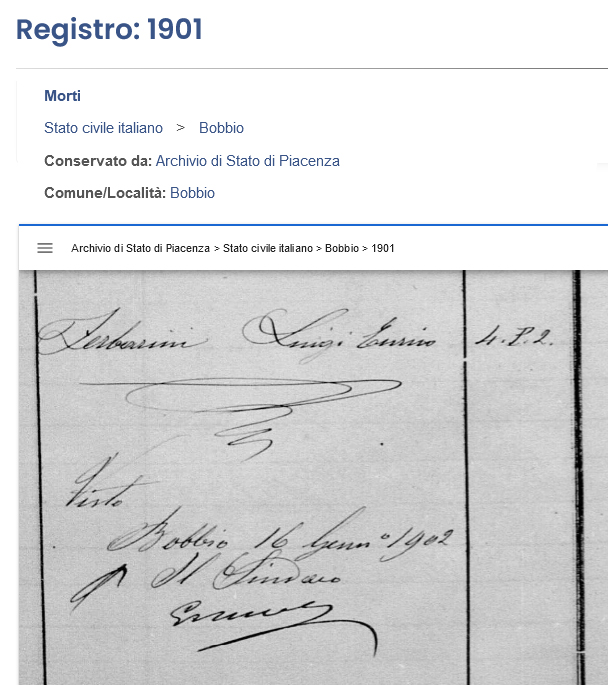 Registro: 1901
Morti
Stato civile italiano > Bobbio
Conservato da: Archivio di Stato di Piacenza
Comune/Località: Bobbio
Archivio di Stato di Piacenza > Stato civile italiano > Bobbio > 1901
Luigi 4. P. 2.
Visto
Bobbio 16 Genn° 1902
Il Sindaco